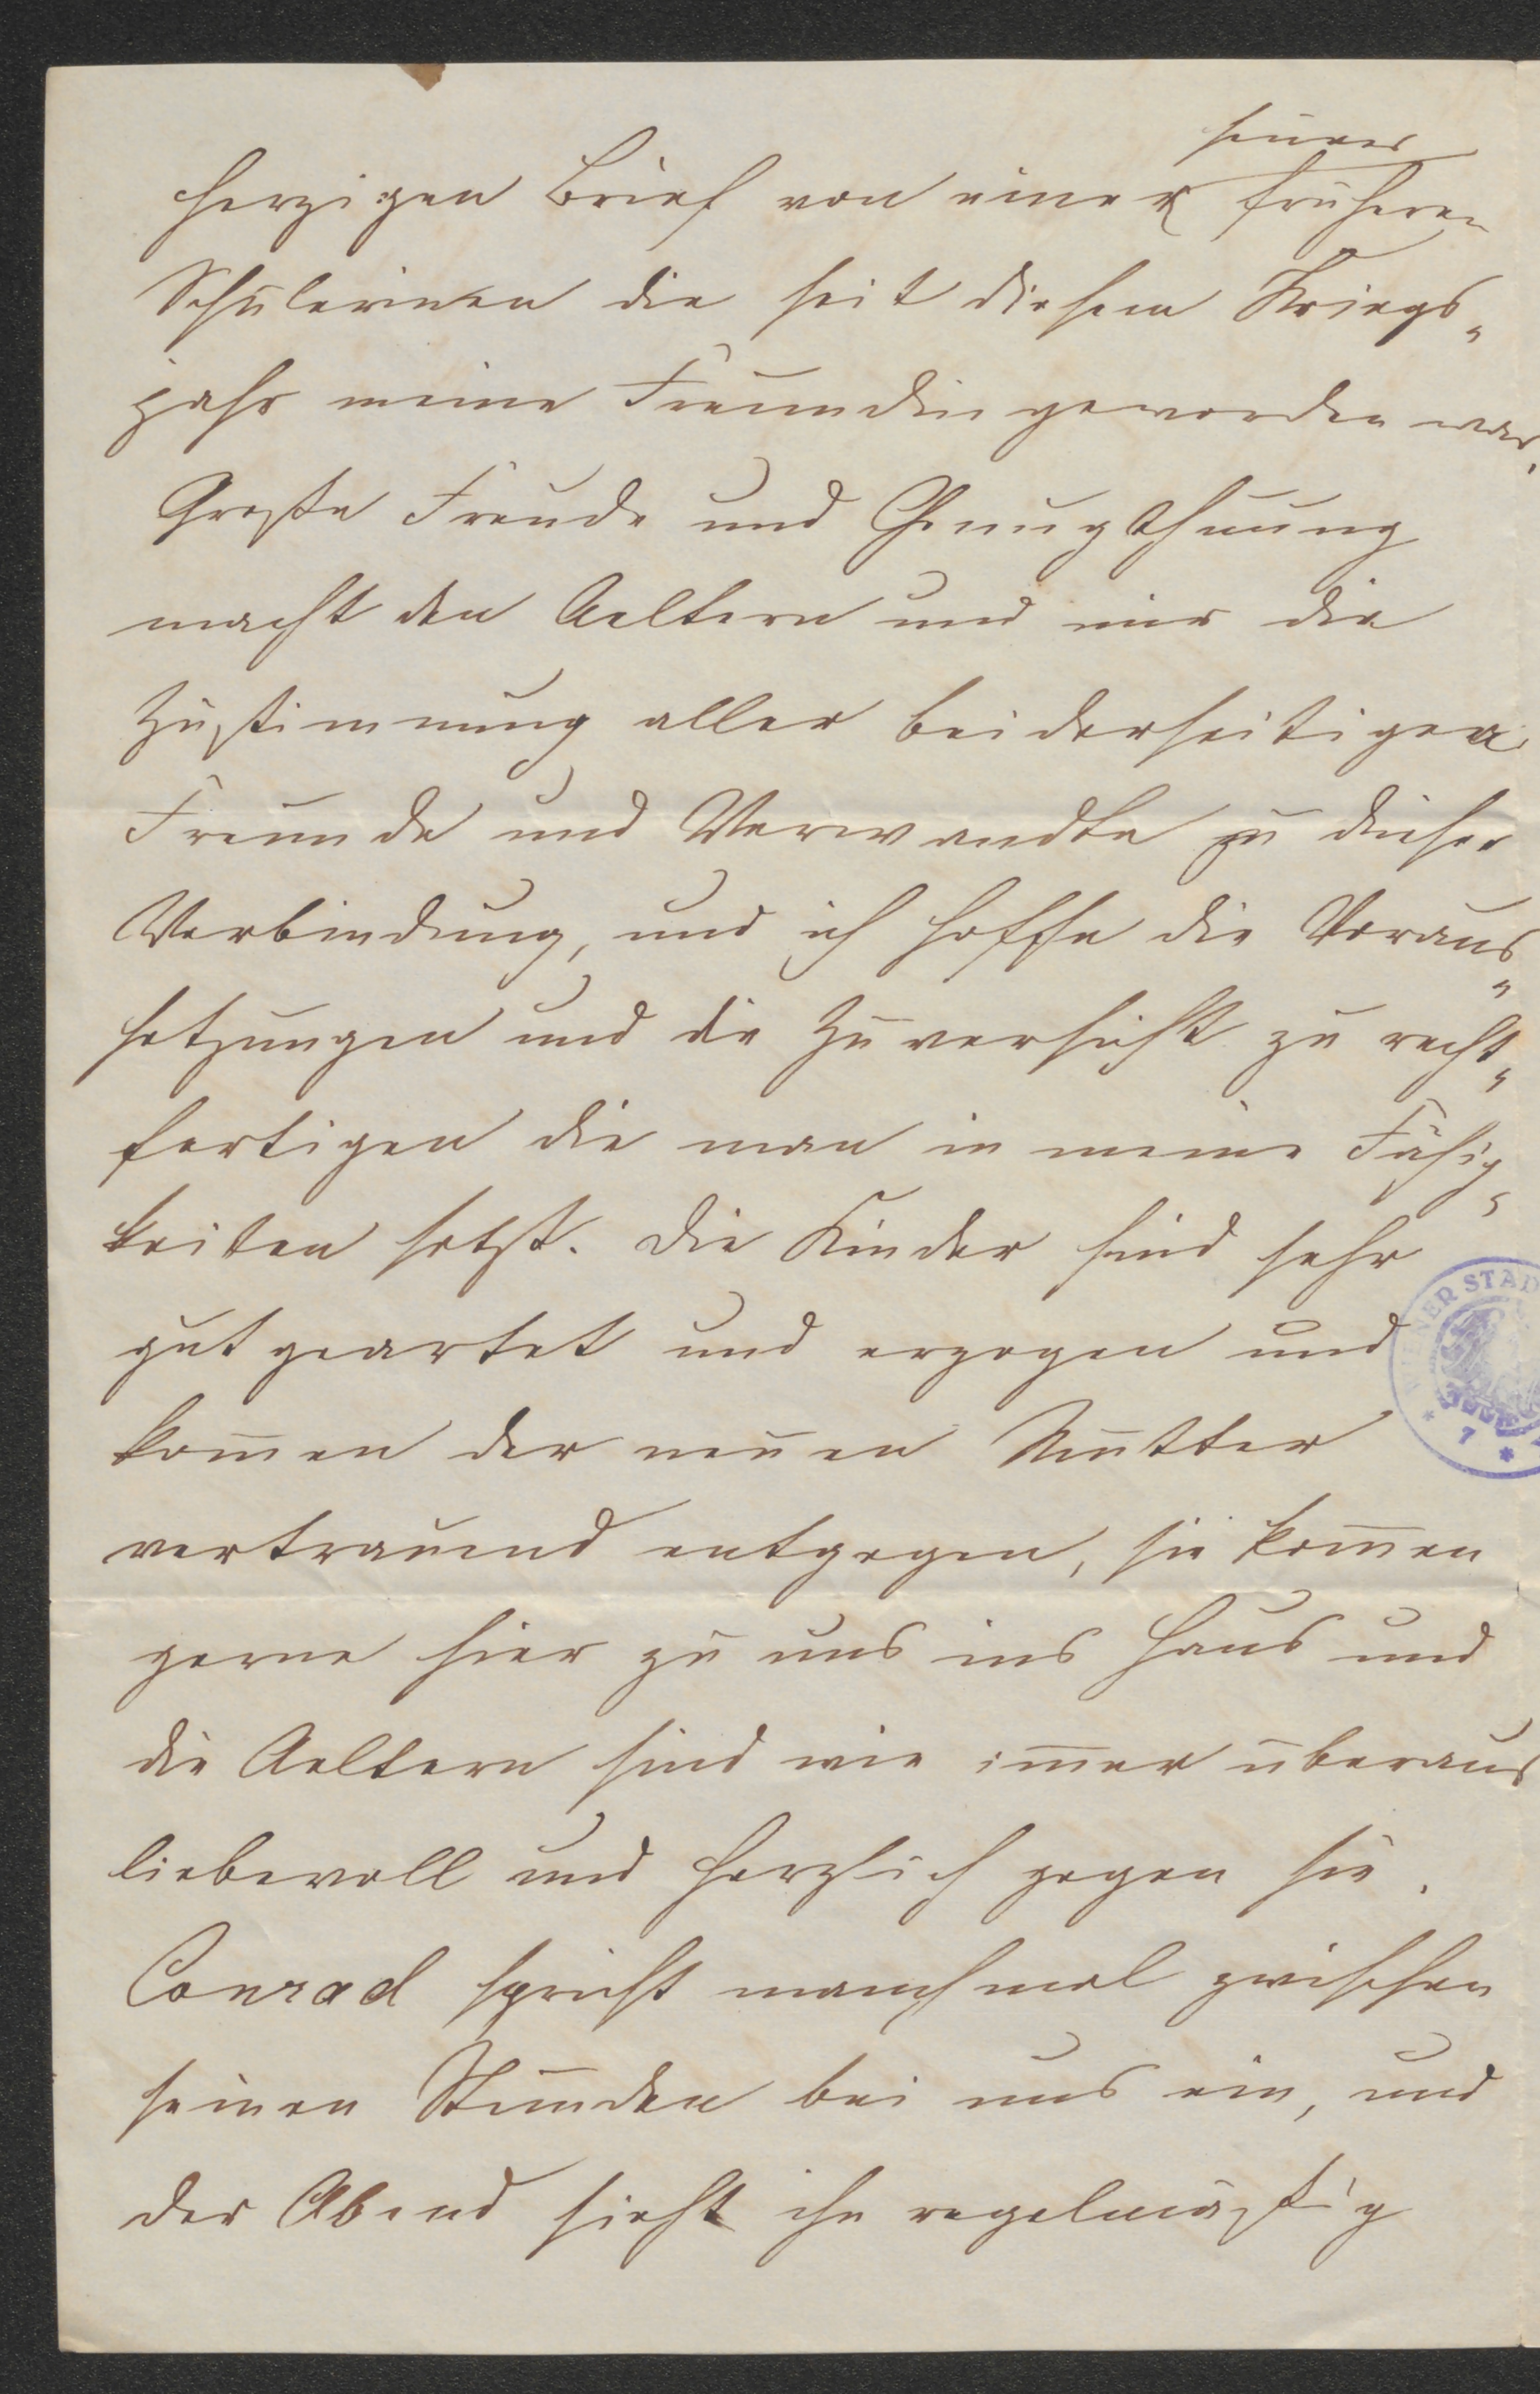 seiner
herzigen Brief von einer früheren
Schülerinen die seit diesem Kriegs„
jahr meine Freundin geworden war.
Große Freude und Genugthuung
macht den Aeltern und mir die
Zustimmung aller beiderseitigen
Freunde und Verwandte zu dieser
Verbindung, und ich hoffe die Voraus„
setzungen und die Zuversicht zu recht„
fertigen die man in meine Fähig„
keiten setzt. Die Kinder sind sehr
gut geartet und erzogen und
kom̄en der neuen Mutter
vertrauend entgegen, sie kom̄en
gerne hier zu uns ins Haus und
die Aeltern sind wie im̄er überaus
liebevoll und herzlich gegen sie.
Conrad spricht manchmal zwischen
seinen Stunden bei uns ein, und
der Abend sieht ihn regelmäßig
WIENER STAD
* 7 *